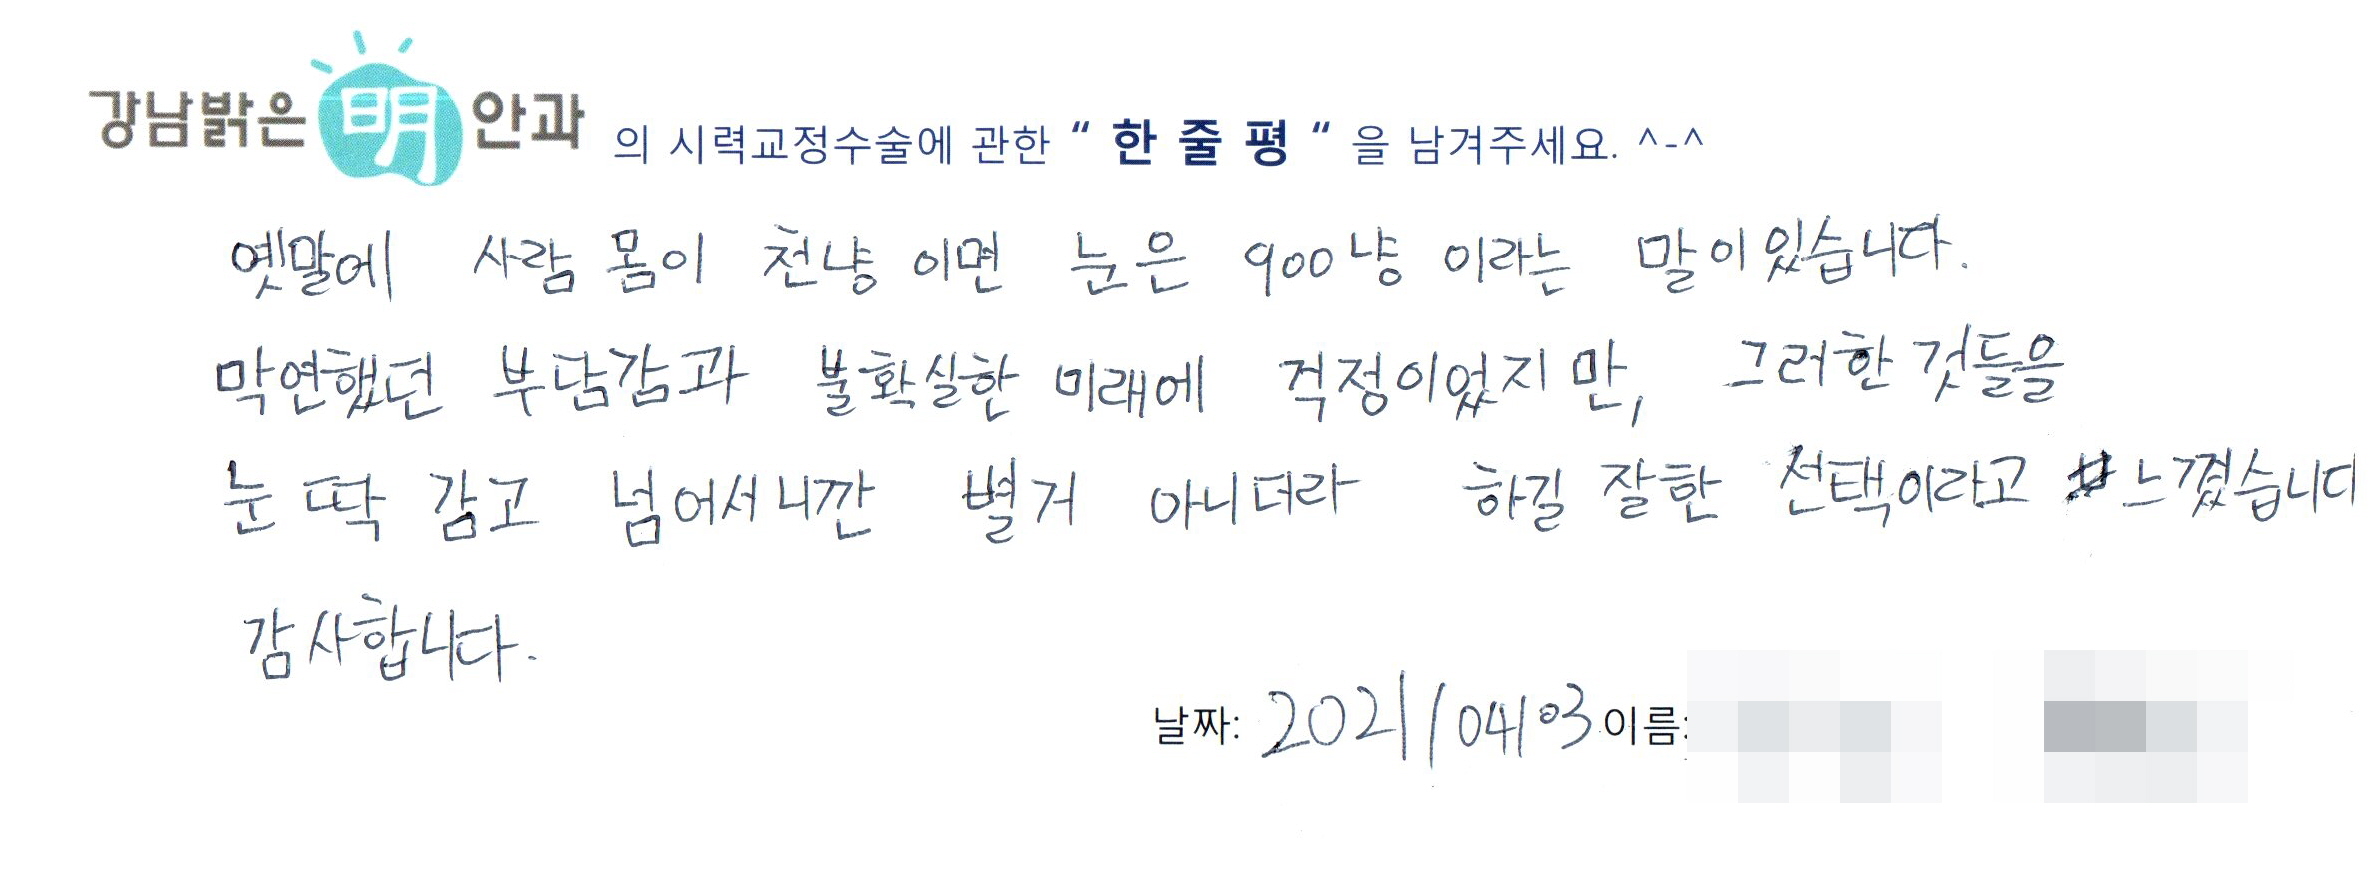 강남밝은 明 안과 의 시력교정수술에 관한 “ 한 줄 평 “ 을 남겨주세요. ^-^
옛말에 사람 몸이 천냥 이면 눈은 900냥 이라는 말이 있습니다.
막연했던 부담감과 불확실한 미래에 걱정이었지만, 그러한 것들을
눈 딱 감고 넘어서니깐 별거 아니더라 하길 잘한 선택이라고 느꼈습니다
감사합니다.
날짜: 2021/04/03 이름: